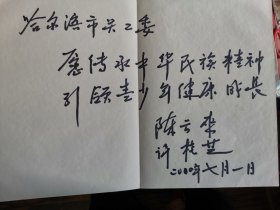 哈尔滨市关工委
愿传承中华民族精神
引领青少年健康成長
陈云
许
二000年七月一日